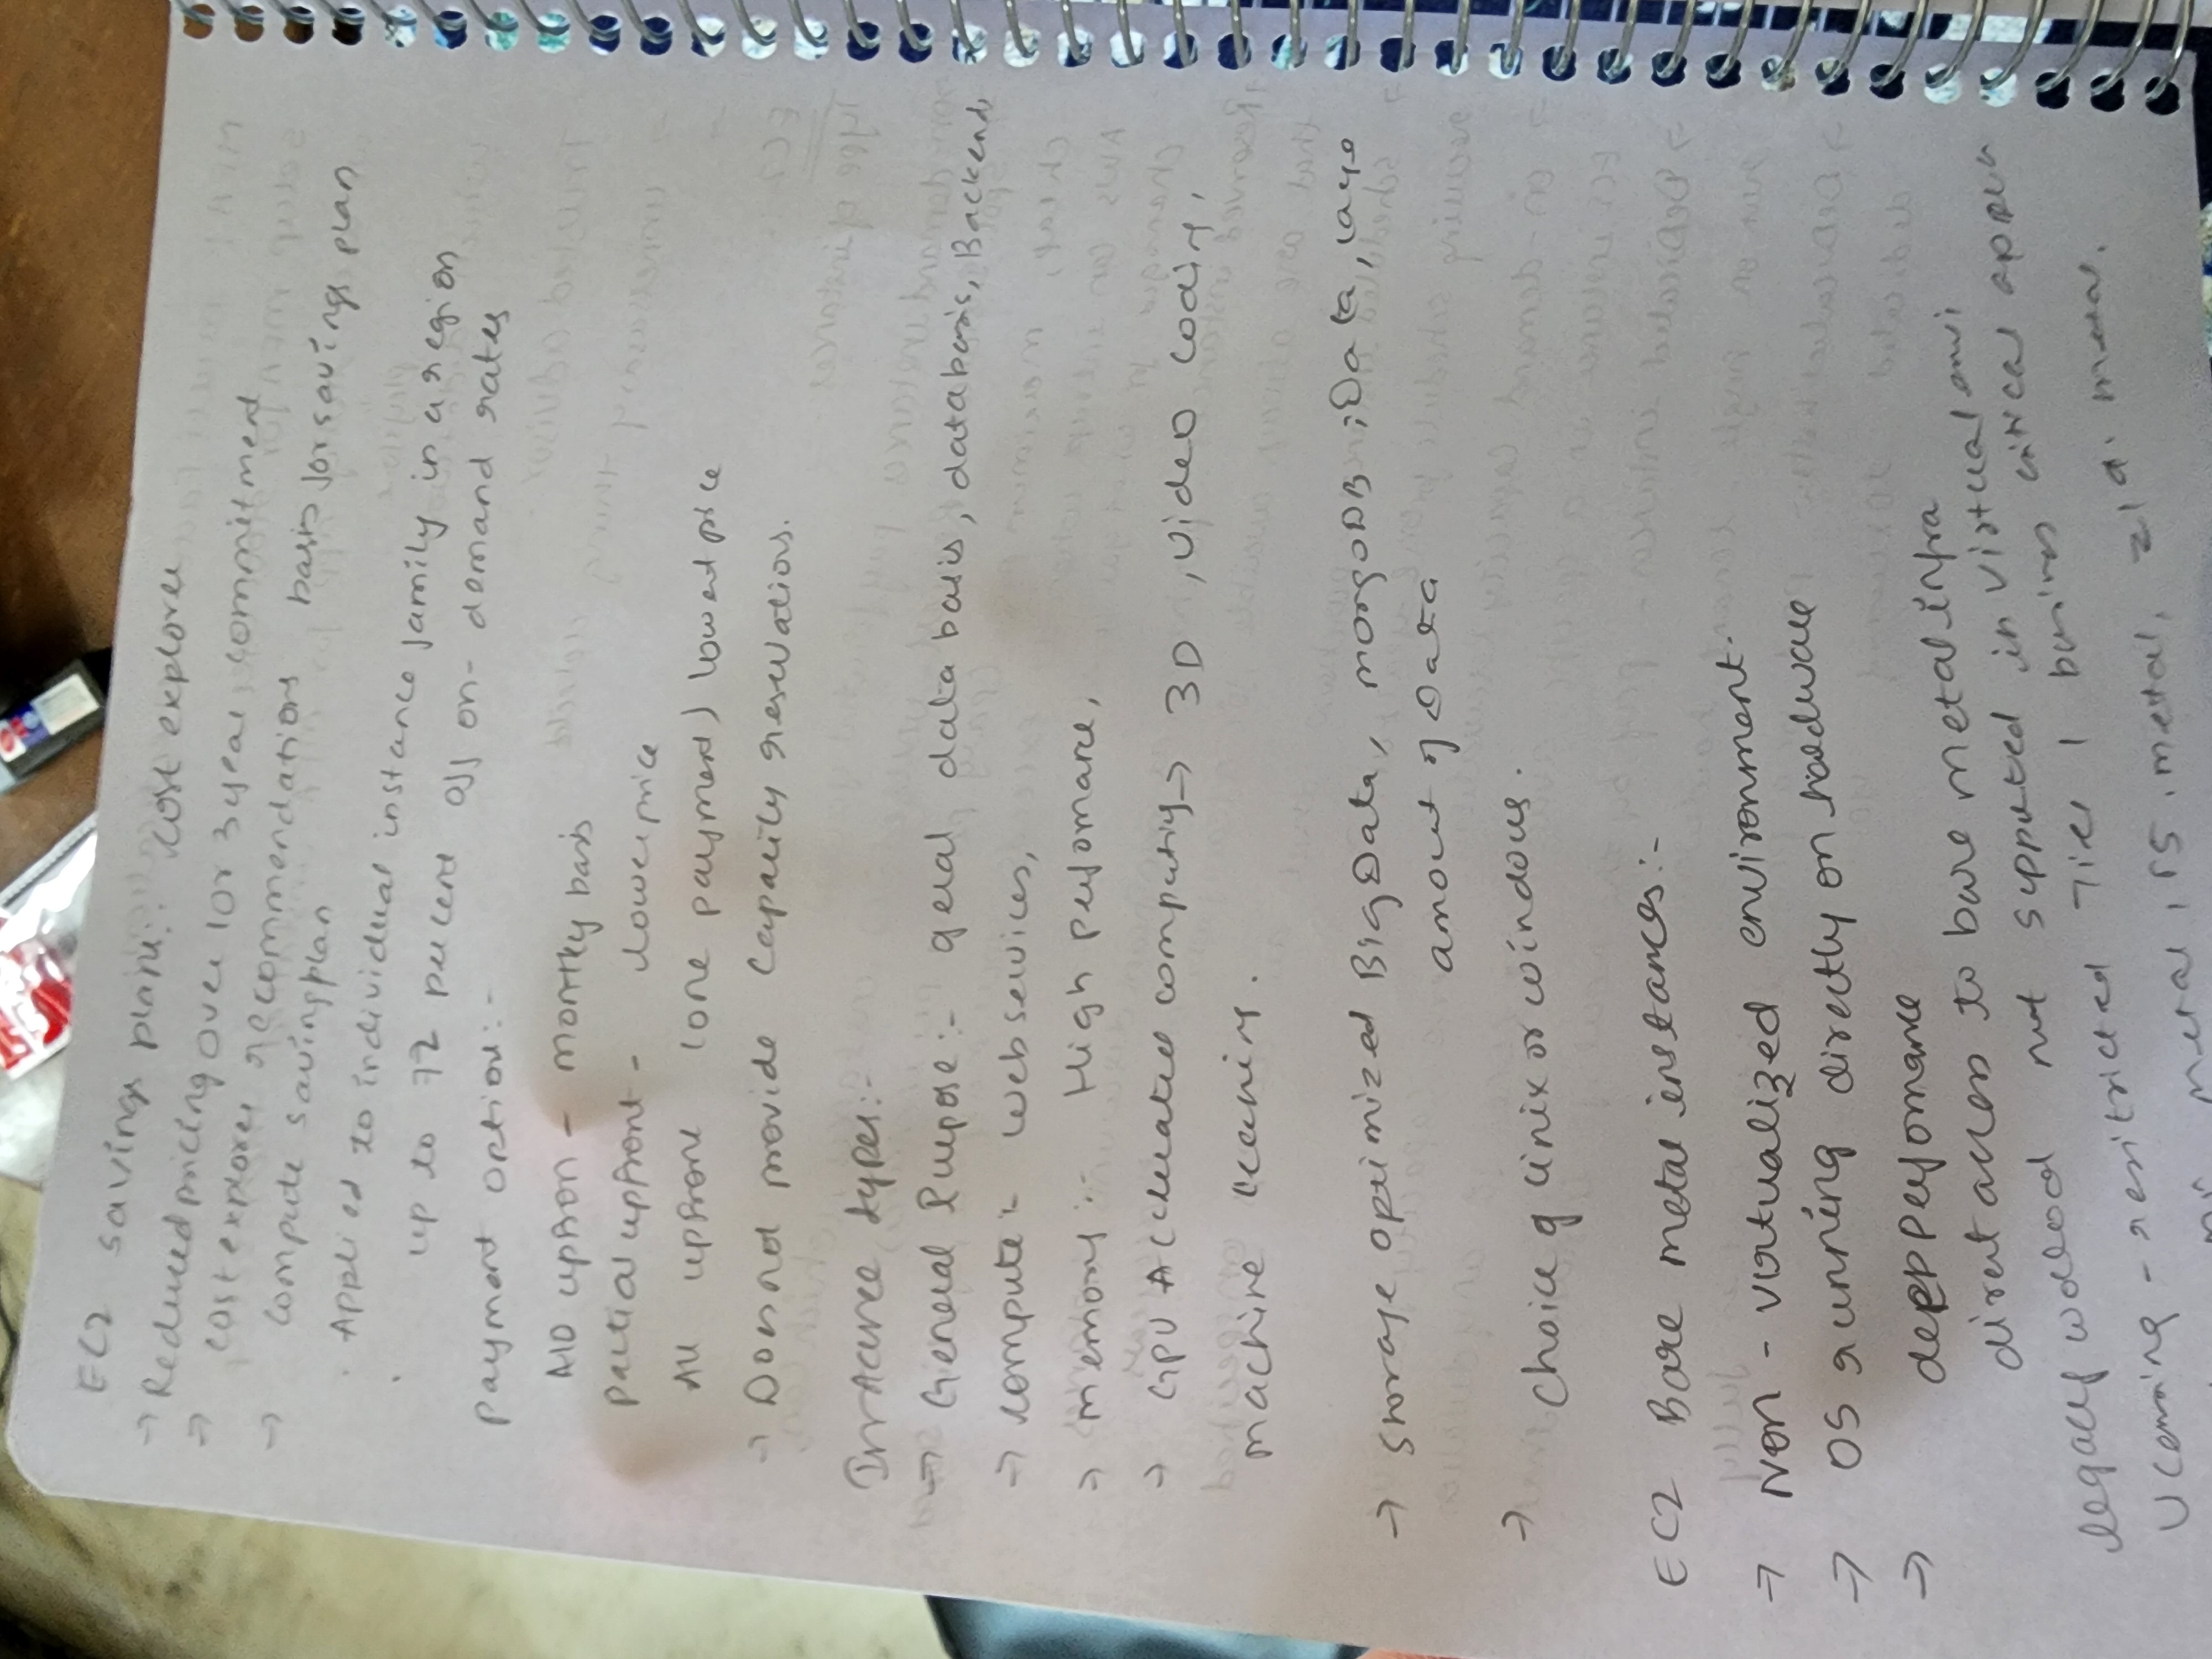 EC2 savings plans:. Cost explorer
→ Reduced pricing over 1 or 3 year commitment
→ Cost explorer recommendations basis for savings plan
→ Compute saving plan
. Applied to individual instance family in a region
. up to 72 percent off on-demand rates
Payment option:-
No upfron - monthly basis
Partial upfront - lower price
All upfront (one payment) lowest price
→ Does not provide Capacity reservations.
Instance types:-
→ General Purpose:- geral data basis, databasis, Backend,
→ compute:- web services,
→ memory:- High perfomance,
→ GPU Accelerated computing → 3D, video coding,
machine learning.
→ storage optimized Big Data, mongoDB, Data, large
amount of Data
→ Choice of linix or windows.
EC2 Bare metal instances:-
→ Non-virtualized environment.
→ OS running directly on hardware
→ deep perfomance
direct access to bare metal infra
legacy wolload not supported in virtual envi
Licensing - restricted Tier 1 business critical
metal, r5.metal, z1d.metal.